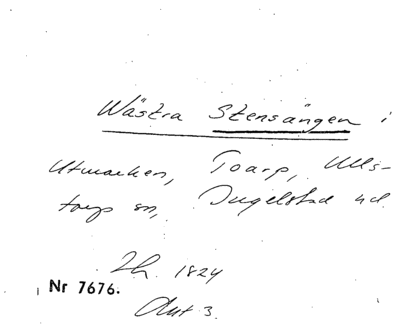 Wästra Stensängen i
Utmarken, Toarp, Ulls-
torp sn, Ingelstad hd.
Lh. 1824
Nr 7676.
Akt 3.